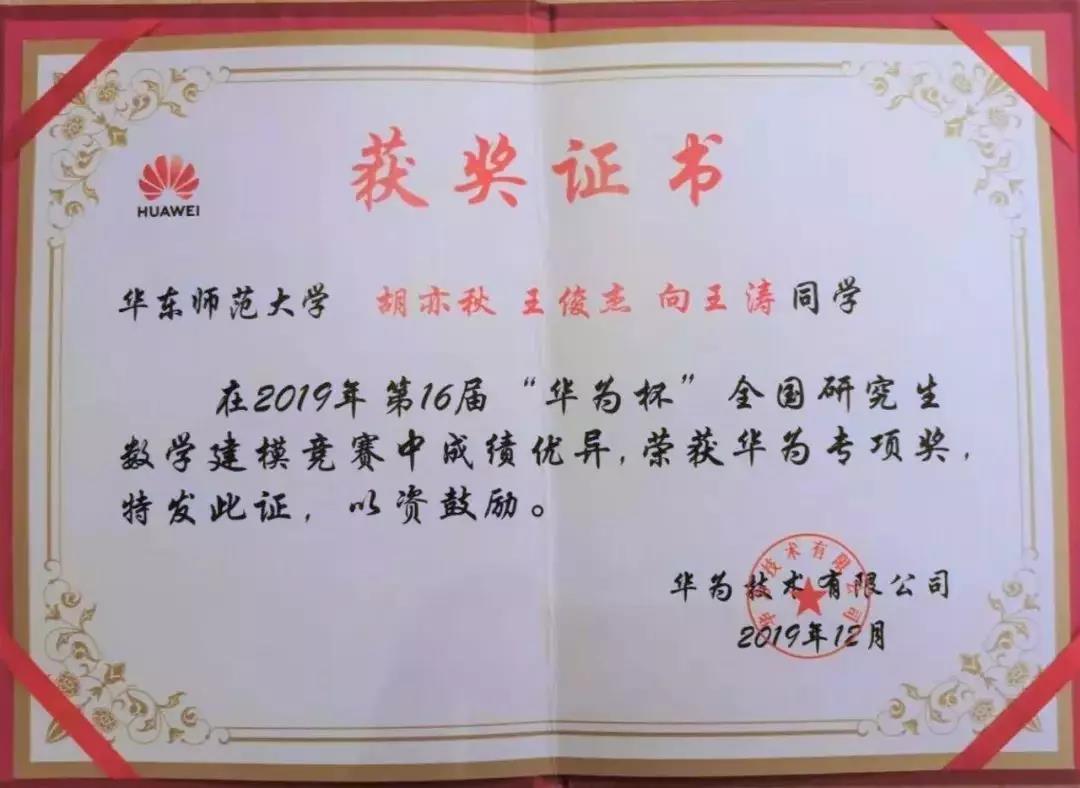 获奖证书
HUAWEI
华东师范大学 胡亦秋 王俊杰 向王涛同学
在2019年第16届“华为杯”全国研究生
数学建模竞赛中成绩优异,荣获华为专项奖,
特发此证,以资鼓励。
华为技术有限公司
2019年12月
华为技术有限公司